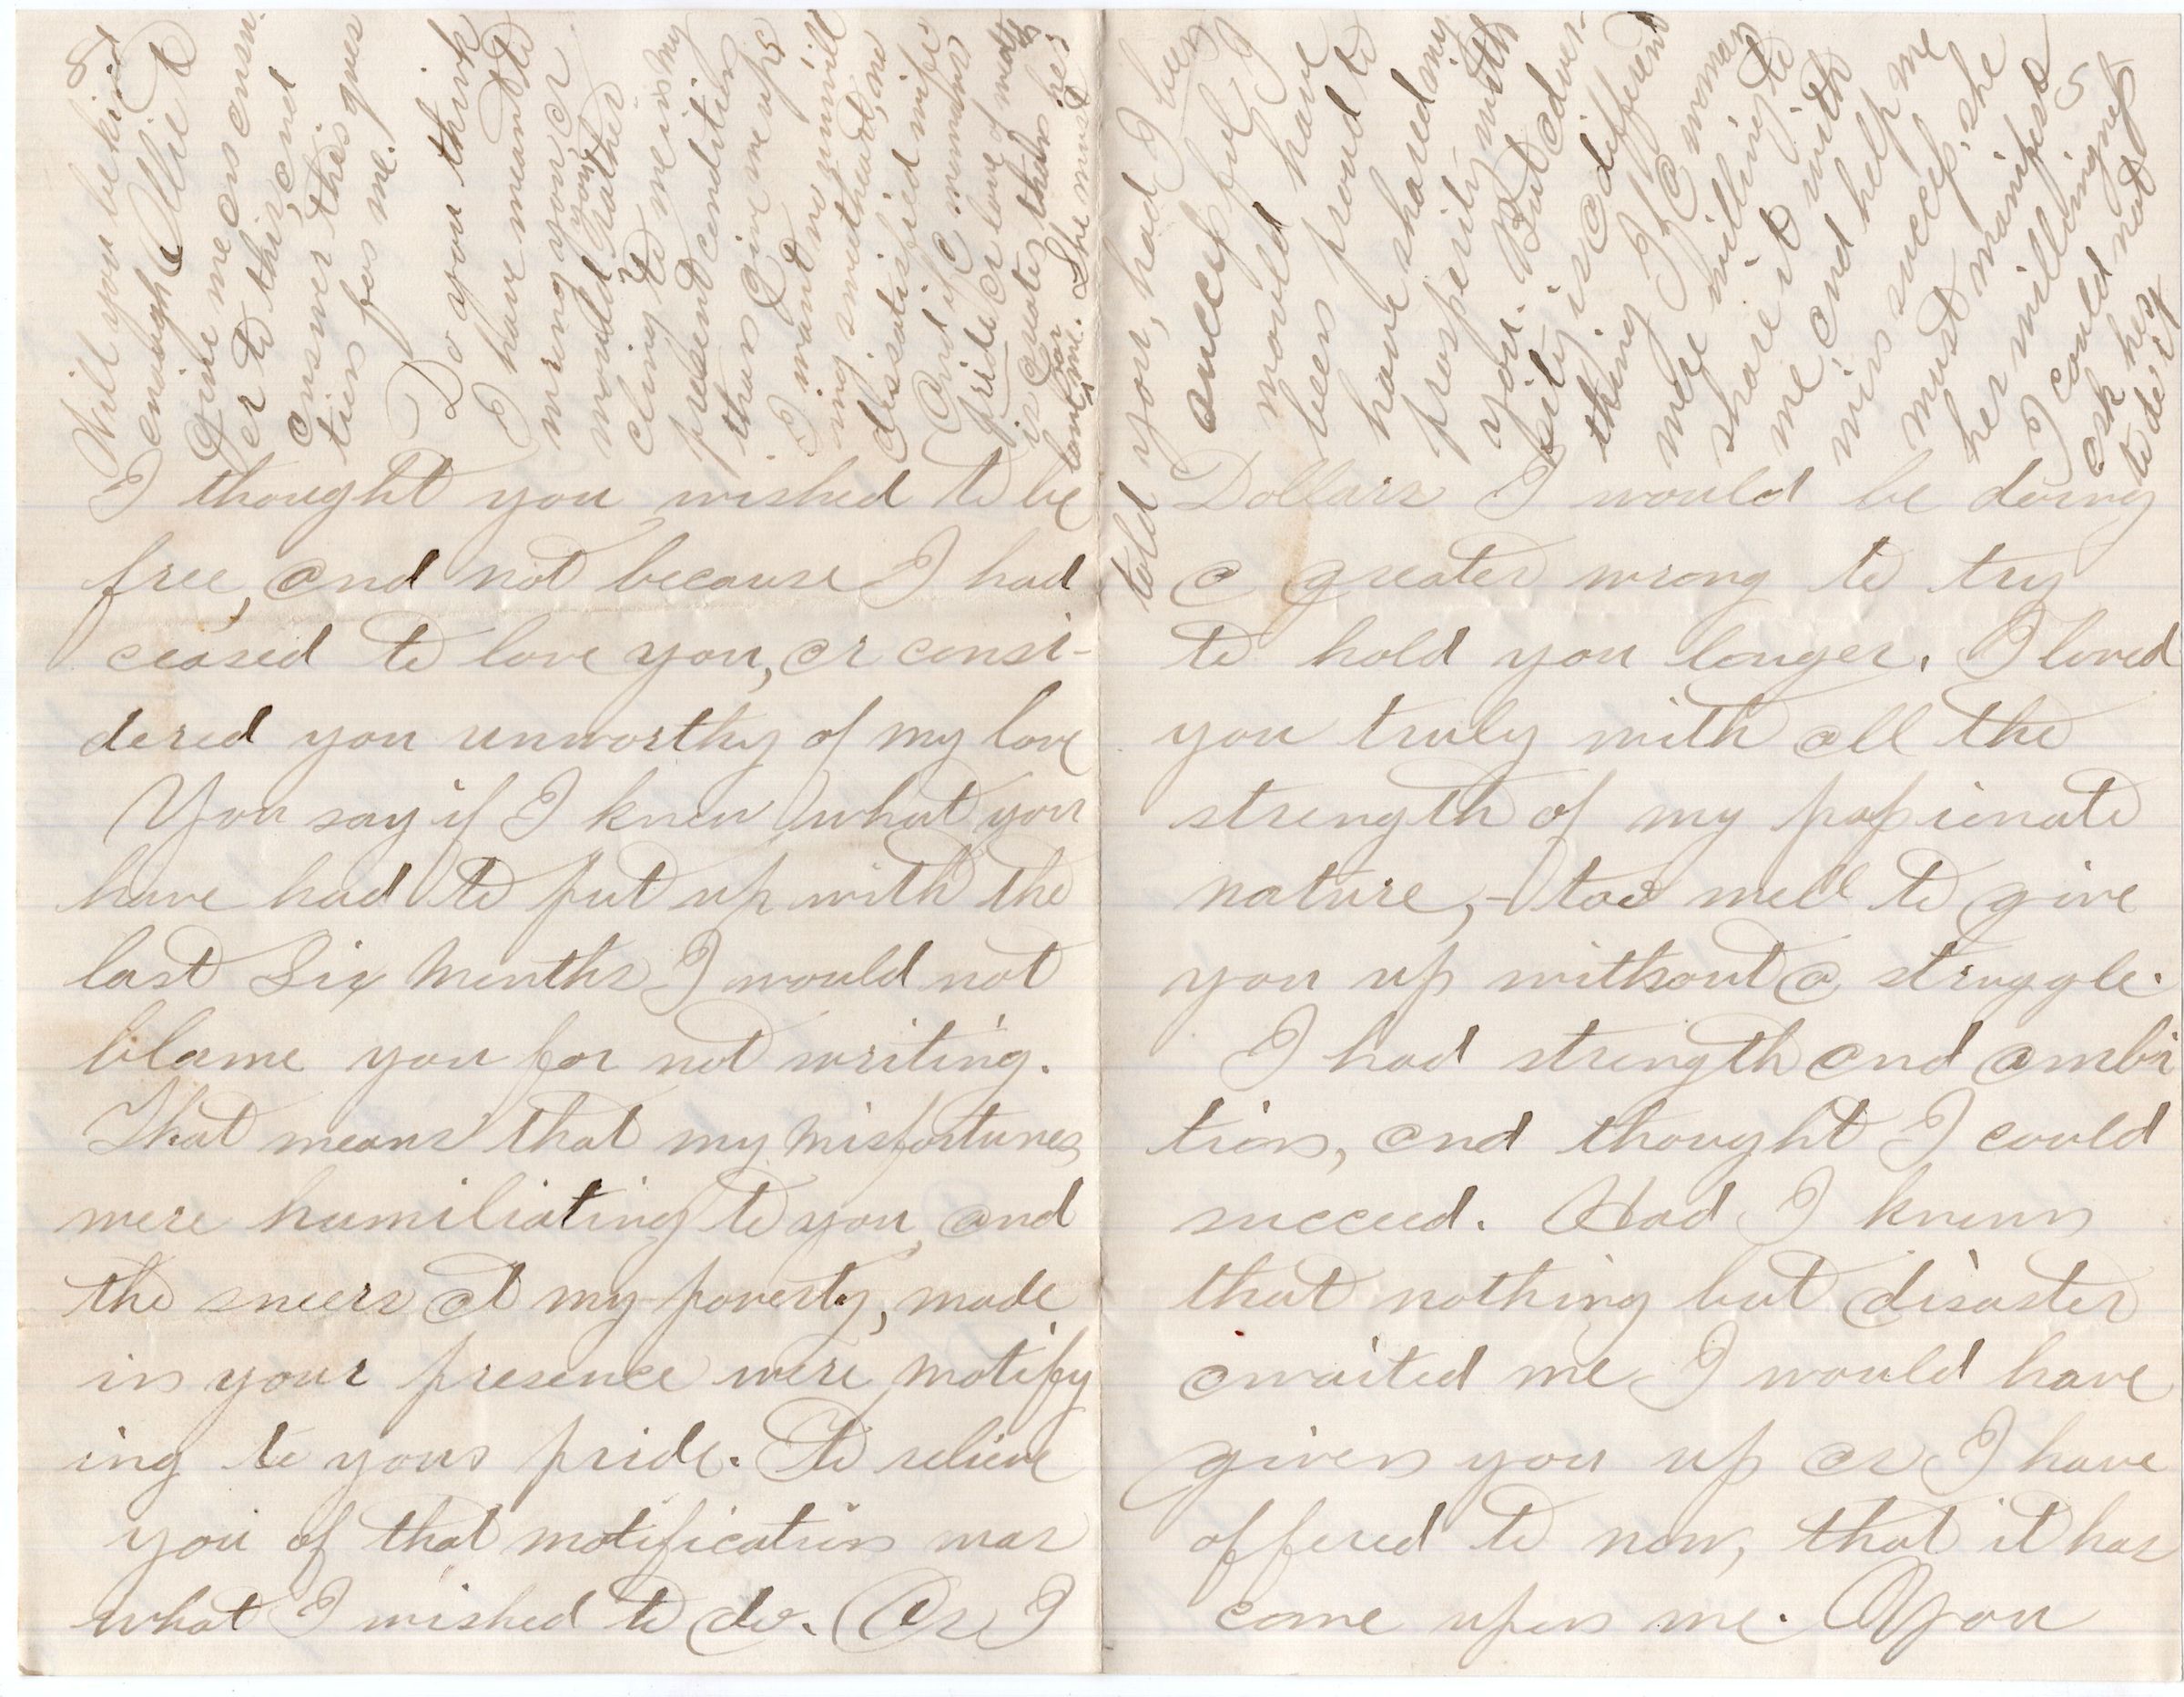 I thought you wished to be
free, and not because I had
ceased to love you, or consi-
dered you unworthy of my love
You say if I knew what you
have had to put up with the
last Six Months I would not
blame you for not writing.
That means that my misfortunes
were humiliating to you, and
the sneers at my poverty, made
in your presence were motify
ing to your pride. To relieve
you of that motification was
what I wished to do. As I
told you, had I been
successful I
would have
been proud to
have shared my
prosperity with
you. But adver-
sity is a different
thing. If a woman
were willing to
share it with
me and help me
win success, she
must manifest
her willingness
I could not
ask her
to do it
5
Dollars I would be doing
a greater wrong to try
to hold you longer. I loved
you truly with all the
strength of my passionate
nature, - too well to give
you up without a struggle.
I had strength and ambi
tion, and thought I could
succeed. Had I known
that nothing but disaster
awaited me I would have
given you up as I have
offered to now, that it has
come upon me. You
8
Will you be kind
enough Allie to
give me an answ-
er to this, and
answer this ques
tion for me.
Do you think
I have meant to
wrong you, or
would you rather
cling to me in my
present condition
than give me up?
I want no unwill
ing sweetheart, no
dissatisfied wife
And if a womans
pride or love of
is greater than her
love for me. She must